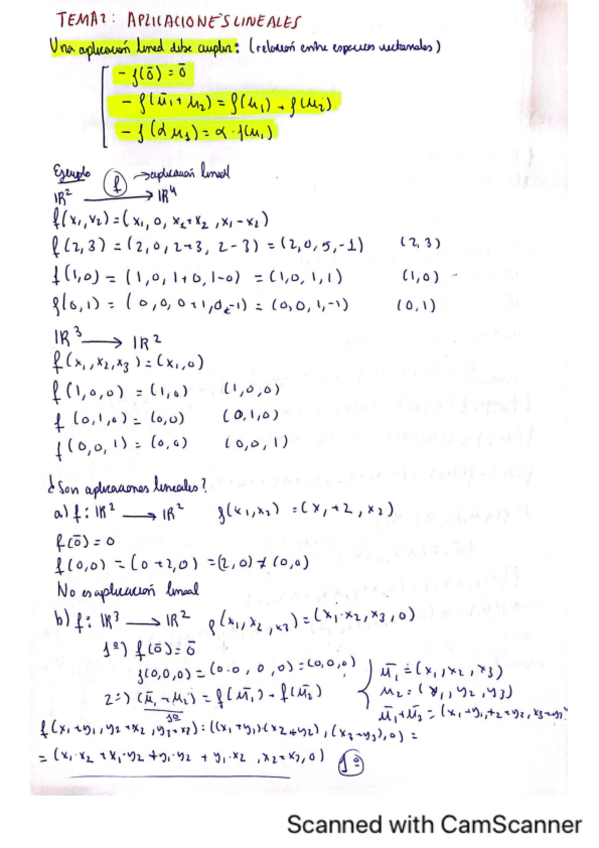 TEMA 2: APLICACIONES LINEALES
Una aplicación lineal debe cumplir: (relación entre espacios vectoriales)
- f(ō) = ō
- f(ū₁+u₂) = f(u₁) + f(u₂)
- f(αu₁) = α·f(u₁)
Ejemplo f → aplicación lineal
IR² → IR⁴
f(x₁,x₂)=(x₁, 0, x₁+x₂, x₁-x₂)
f(2,3) = (2,0, 2+3, 2-3) = (2,0,5,-1) (2,3)
f(1,0) = (1,0, 1+0, 1-0) = (1,0,1,1) (1,0)
f(0,1) = (0,0, 0+1, 0-1) = (0,0,1,-1) (0,1)
IR³ → IR²
f(x₁,x₂,x₃)=(x₁,0)
f(1,0,0) = (1,0) (1,0,0)
f(0,1,0) = (0,0) (0,1,0)
f(0,0,1) = (0,0) (0,0,1)
¿Son aplicaciones lineales?
a) f: IR² → IR² f(x₁,x₂) = (x₁+2, x₂)
f(ō) = 0
f(0,0) = (0+2,0) = (2,0) ≠ (0,0)
No es aplicación lineal
b) f: IR³ → IR² f(x₁,x₂,x₃)=(x₁·x₂,x₃,0)
1º) f(ō)=ō
f(0,0,0)=(0·0,0,0)=(0,0,0) ū₁=(x₁,x₂,x₃)
2º) (ū₁+u₂) = f(ū₁)+f(ū₂) u₂=(y₁,y₂,y₃)
1º ū₁+ū₂=(x₁+y₁,
f(x₁+y₁,y₂+x₂,y₃+x₃)=((x₁+y₁)(x₂+y₂),(x₃+y₃),0)=
=(x₁·x₂+x₁·y₂+y₁·y₂+y₁·x₂, x₂+x₃,0) 1º
Scanned with CamScanner